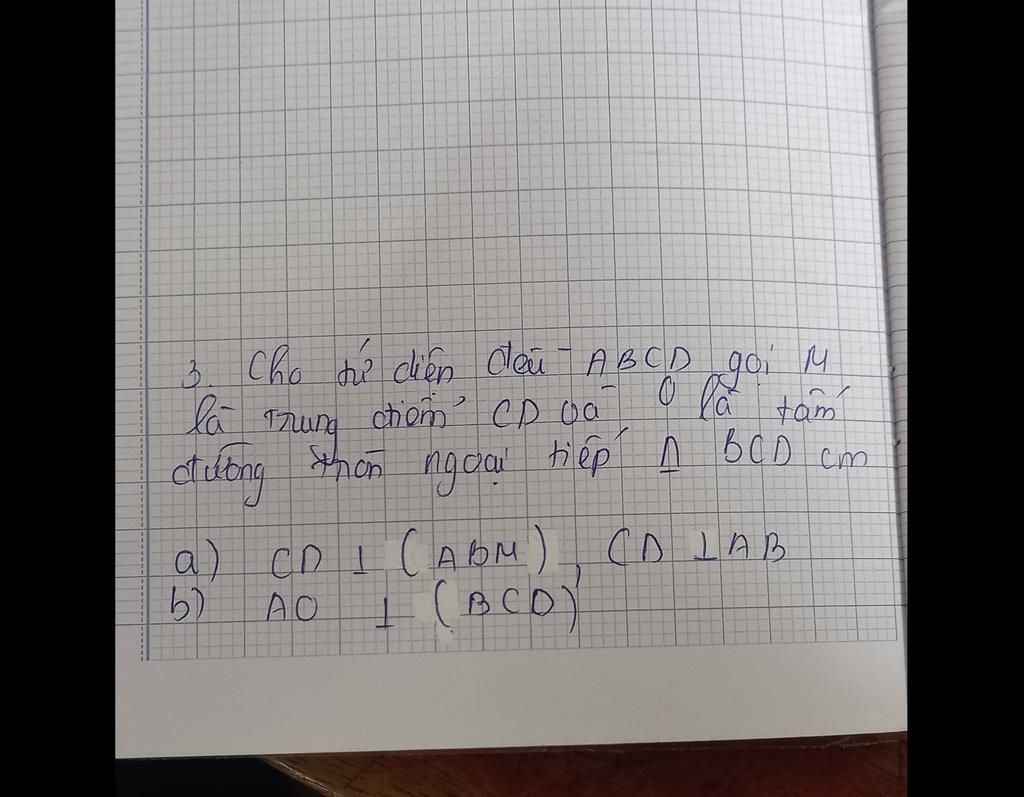 3. Cho tứ diện đều ABCD gọi M
là trung điểm CD và O là tâm
đường tròn ngoại tiếp Δ BCD cm
a) CD ⊥ (ABM), CD ⊥ AB
b) AO ⊥ (BCD)